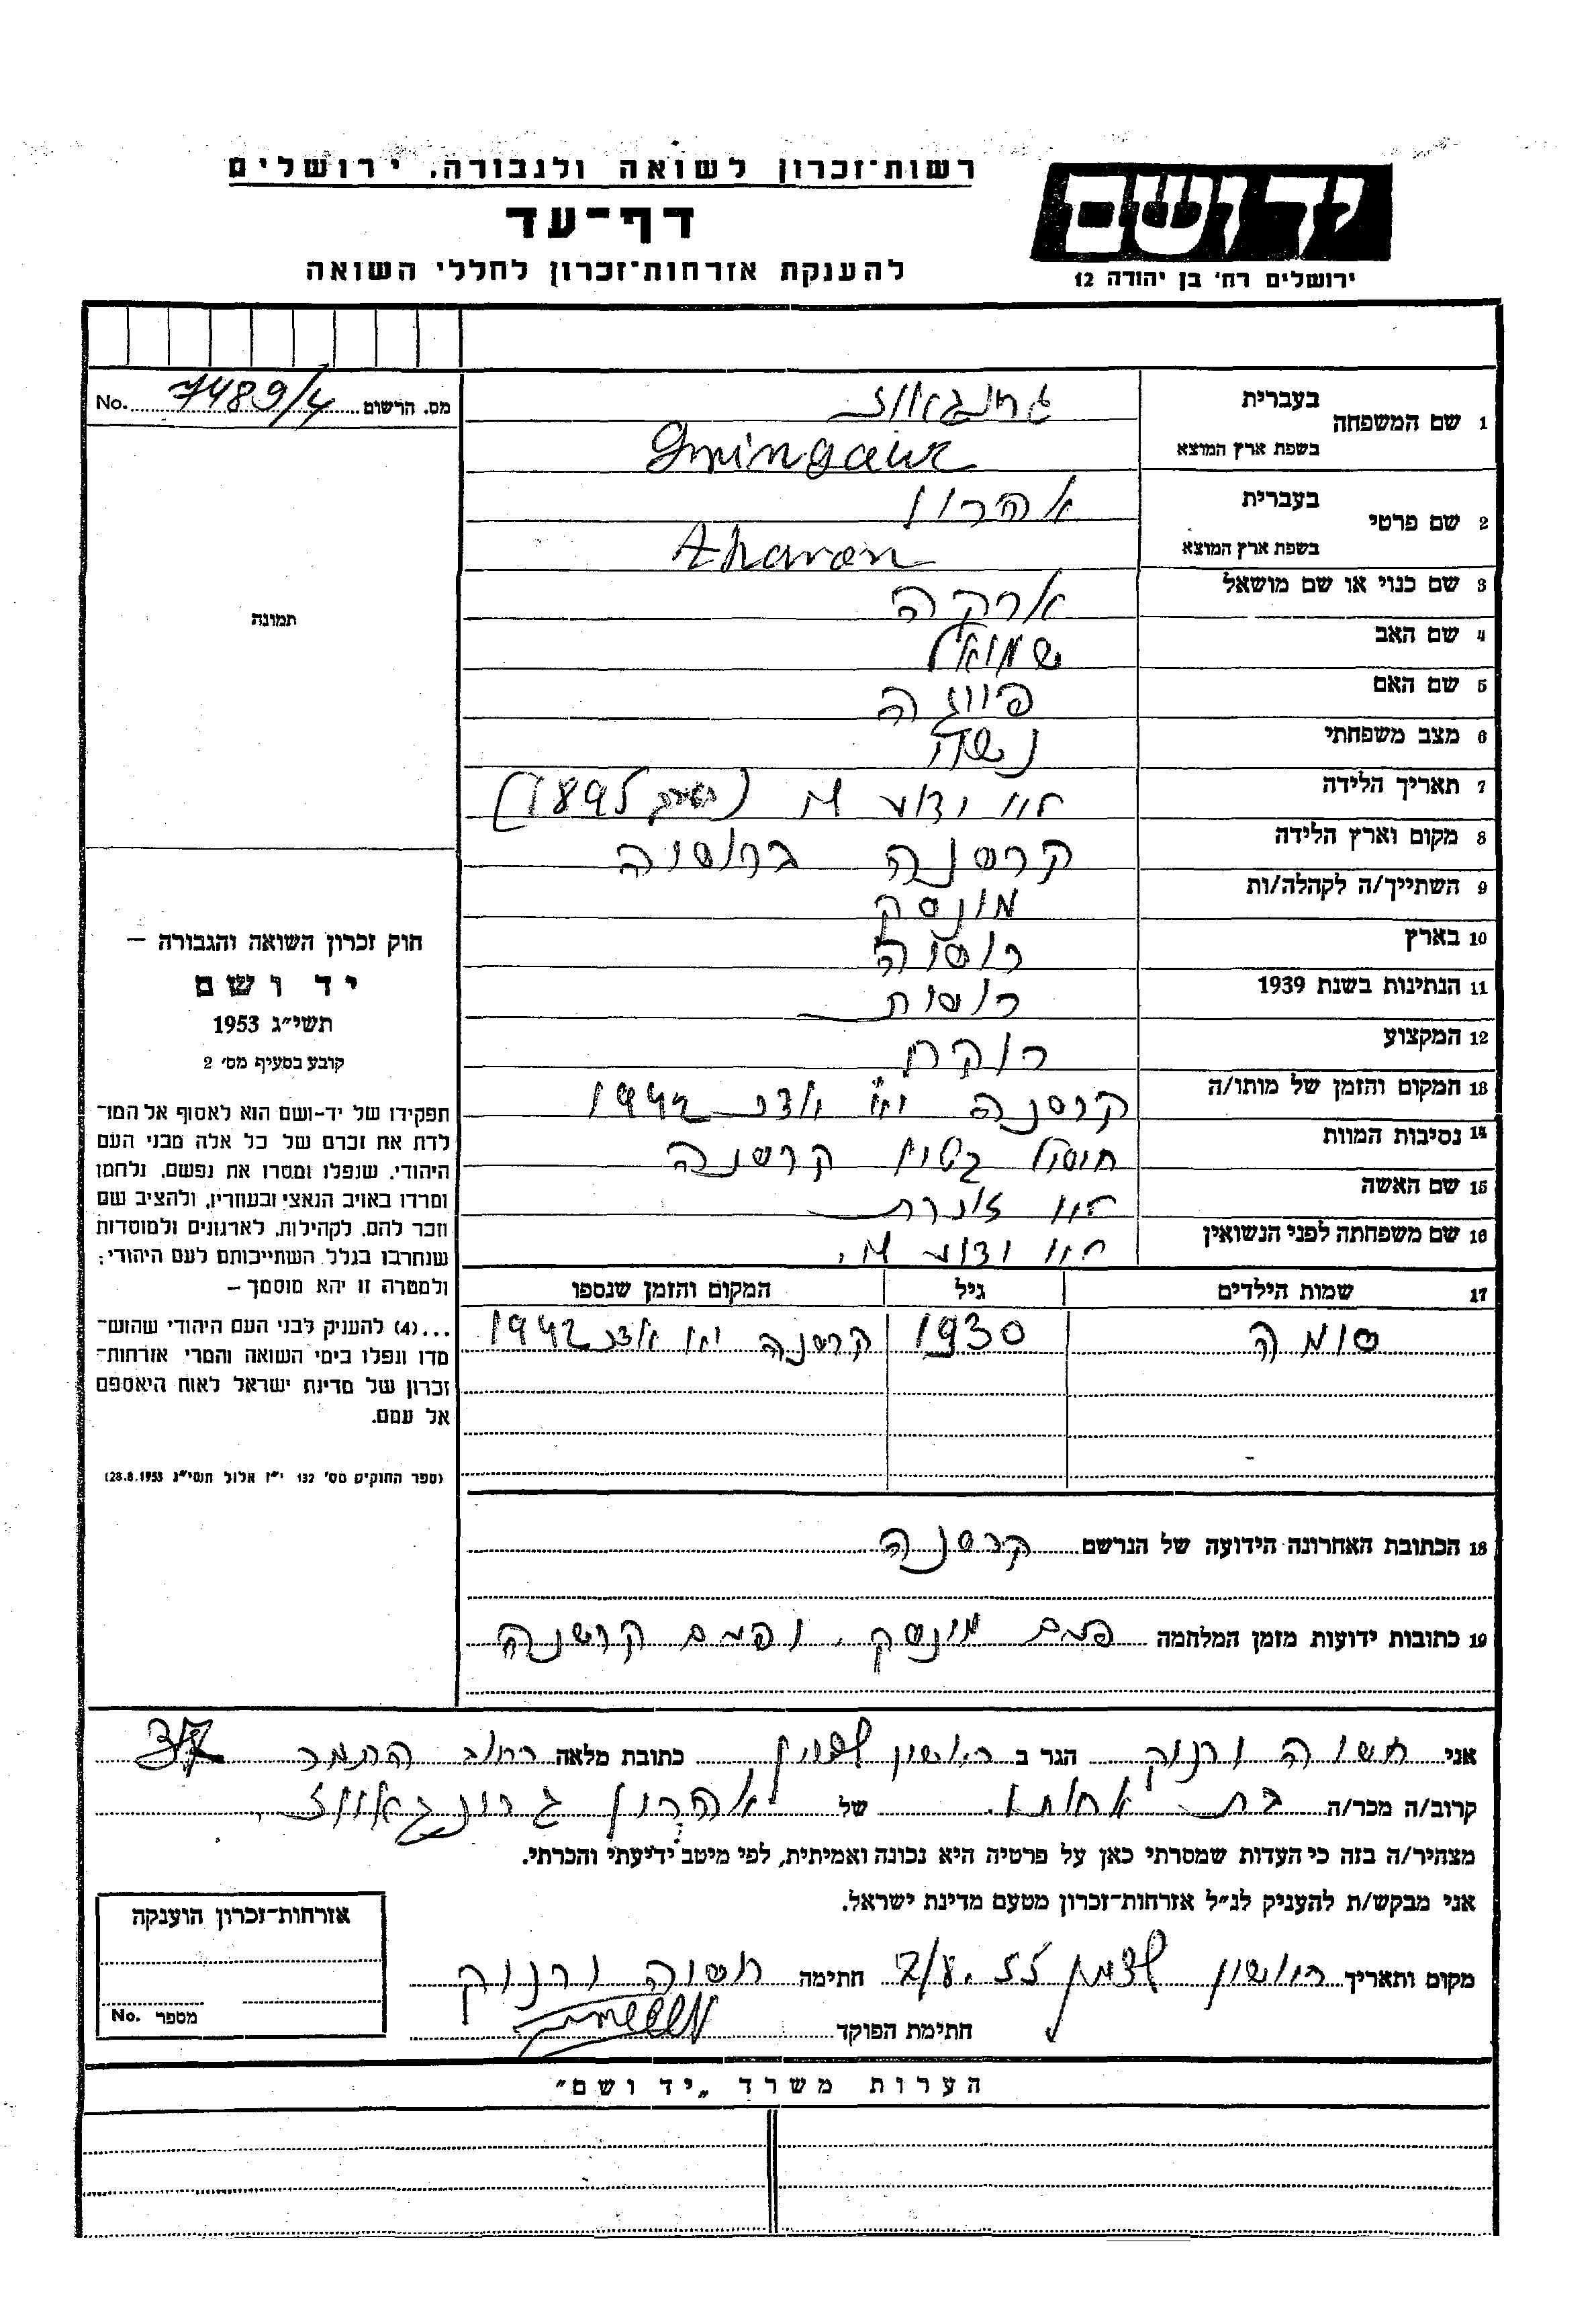 רשות־זכרון לשואה ולגבורה. ירושלים
דף־עד
להענקת אזרחות־זכרון לחללי השואה
יד ושם
ירושלים רח' בן יהודה 12
מס. הרשום 7489/4 No.
תמונה
1 שם המשפחה
בעברית
בשפת ארץ המוצא
2 שם פרטי
בעברית אהרון
בשפת ארץ המוצא Aharon
3 שם כנוי או שם מושאל ארקה
4 שם האב שמואל
5 שם האם
6 מצב משפחתי נשוי
7 תאריך הלידה (1895)
8 מקום וארץ הלידה קרסנה ברוסיה
9 השתייך/ה לקהלה/ות מינסק
10 בארץ רוסיה
11 הנתינות בשנת 1939 רוסית
12 המקצוע רוקח
13 המקום והזמן של מותו/ה קרסנה יא אדר 1942
14 נסיבות המוות חוסל קרסנה
15 שם האשה לא זוכרת
16 שם משפחתה לפני הנשואין לא
17 שמות הילדים גיל המקום והזמן שנספו
סומה 1930 קרסנה יא אדר 1942
18 הכתובת האחרונה הידועה של הנרשם קרסנה
19 כתובות ידועות מזמן המלחמה מינסק קרסנה
חוק זכרון השואה והגבורה –
יד ושם
תשי״ג 1953
קובע בסעיף מס' 2
תפקידו של יד-ושם הוא לאסוף אל המו־
לדת את זכרם של כל אלה מבני העם
היהודי, שנפלו ומסרו את נפשם, נלחמו
ומרדו באויב הנאצי ובעוזריו, ולהציב שם
וזכר להם, לקהילות, לארגונים ולמוסדות
שנחרבו בגלל השתייכותם לעם היהודי;
ולמטרה זו יהא מוסמך –
...(4) להעניק לבני העם היהודי שהוש־
מדו ונפלו בימי השואה והמרי אזרחות־
זכרון של מדינת ישראל לאות היאספם
אל עמם.
(ספר החוקים מס' 132 י״ז אלול תשי״ג 28.8.1953)
אני הגר ב ראשון לציון כתובת מלאה רחוב התמר 37
קרוב/ה מכר/ה בת אחותו של אהרון
מצהיר/ה בזה כי העדות שמסרתי כאן על פרטיה היא נכונה ואמיתית, לפי מיטב ידיעתי והכרתי.
אני מבקש/ת להעניק לנ״ל אזרחות־זכרון מטעם מדינת ישראל.
מקום ותאריך ראשון לציון 2/8.55 חתימה
חתימת הפוקד
אזרחות־זכרון הוענקה
מספר No.
הערות משרד „יד ושם”